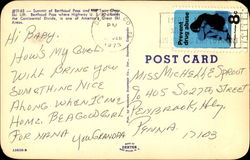 Summit of Berthoud Pass and
El. 11,315. Berthoud Pass where Highway U.S. 40 crosses
the Continental Divide, is one of America's Great Ski
Areas.
Hi Baby.
How's My Girl
Will Bring You
Something Nice
Along When I Come
Home. Be A Good Girl
For Nana You Grandpa
POST CARD
Prevent
drug abuse
8¢
Miss Michelle Sprout
405 South Street
Penbrook, Hbg.
Penna.
17103
DEXTER